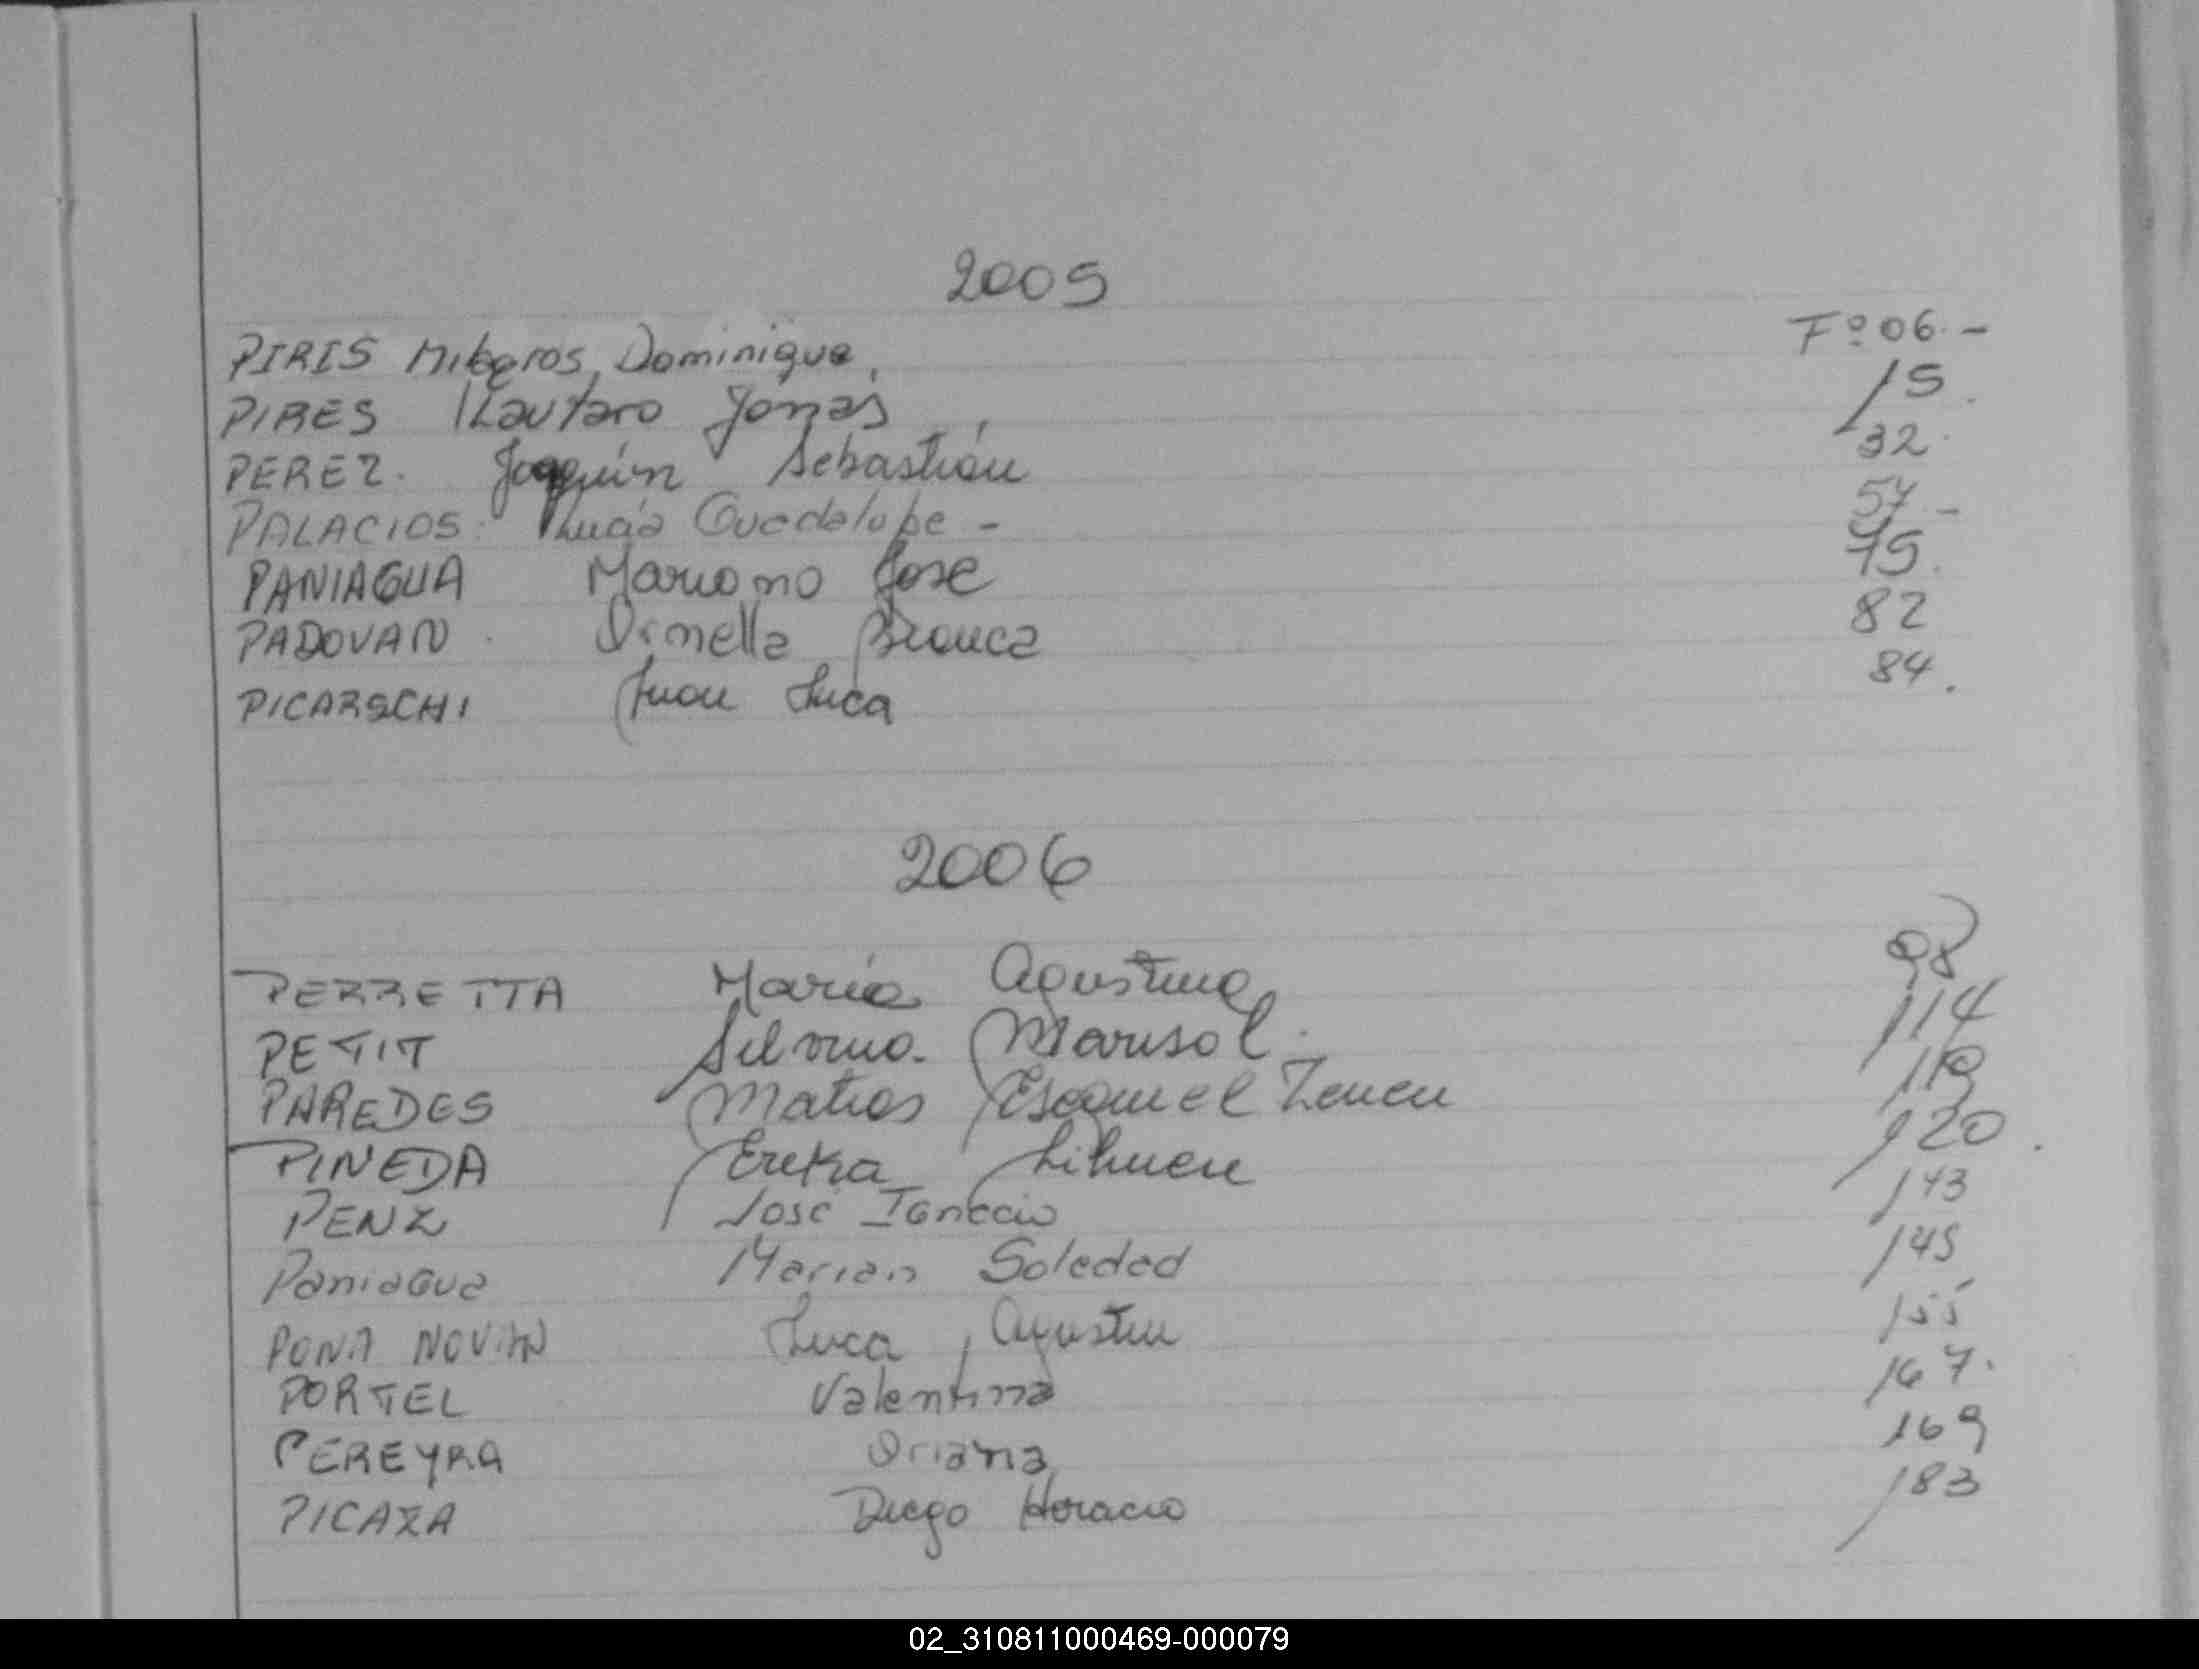 2005
PIRIS Milagros Dominique. Fº 06.-
PIRES Lautaro Jonas 15.
PEREZ. Joaquín Sebastián 32.
PALACIOS. Lucía Guadalupe - 57.-
PANIAGUA Mariano José 75.
PADOVAN. Ornella Bianca 82
PICARSCHI Juan Luca 84.
2006
PERRETTA María Agustina 98
PETIT Silvina. Marisol. 114
PAREDES Matias 119
PINEDA Erika Lihuen 120.
PENZ José Ignacio 143
PaniaGua Marian Soledad 145
Luca Agustin 155
PORTEL Valentina 167.
PEREYRA Oriana 169
PICAZA Diego Horacio 183
02_310811000469-000079